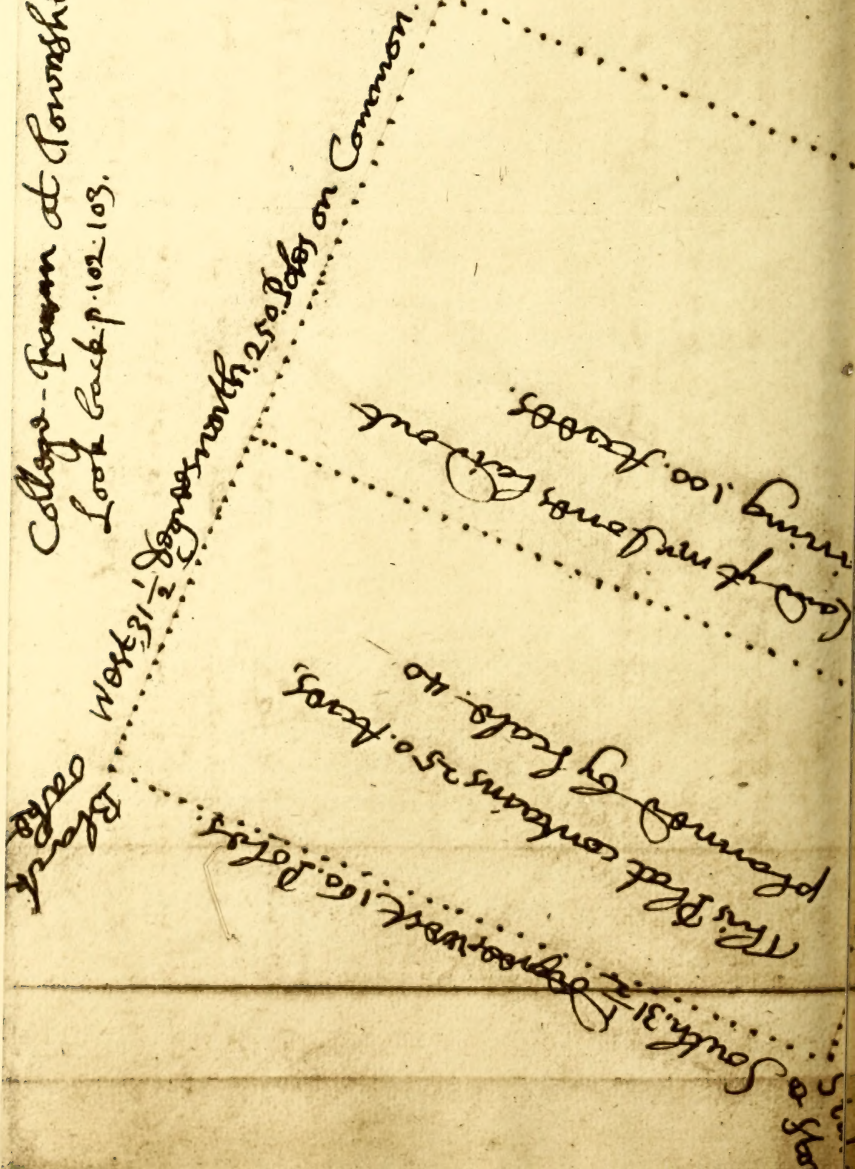 College-Farm at Pownsh
Look back p. 102. 103.
West. 31 1/2 Degrees north. 250. Poles on Common.
Land yt mr Jones laid out
ining. 100. Acres.
This Plat contains 250. Acres,
planned by scale. 40
South. 31 1/2 Degrees west. 160. Poles.
Black
oake